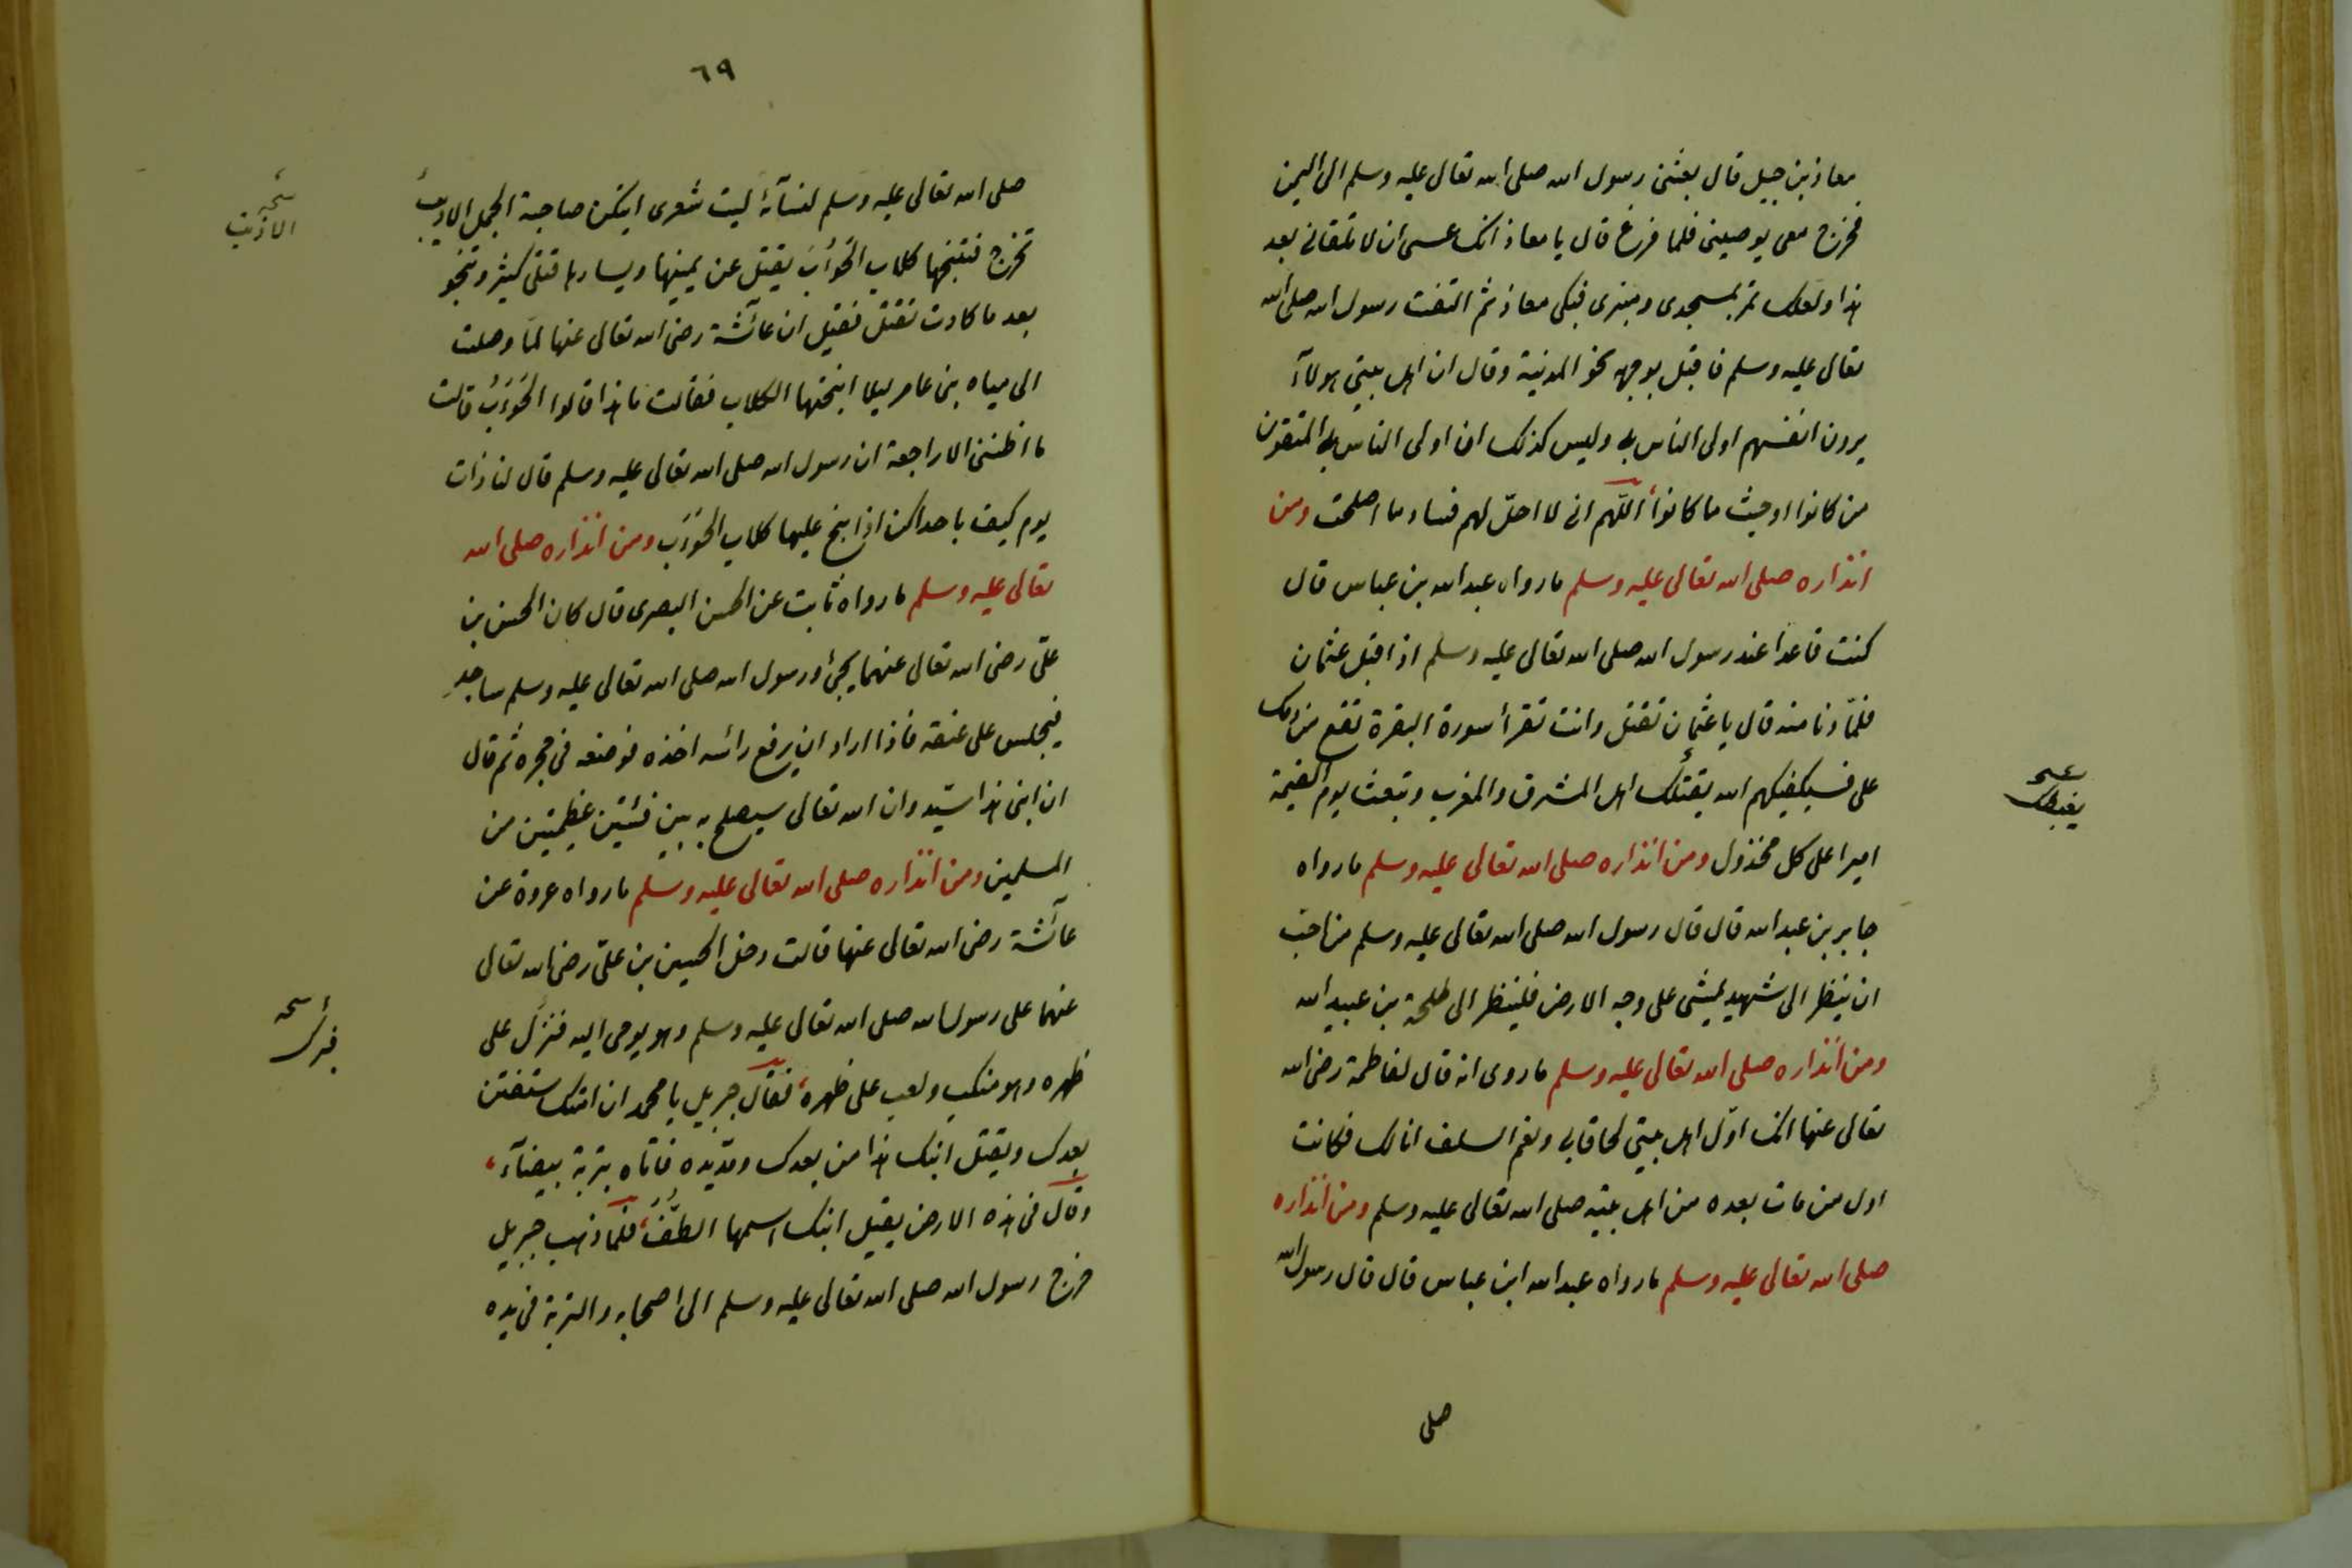 معاذ بن جبل قال بعثنى رسول الله صلى الله تعالى عليه وسلم الى اليمن
فخرج معى يوصينى فلما فرغ قال يا معاذ انك عسى ان لا تلقانى بعد
هذا ولعلك تمر بمسجدى ومنبرى فبكى معاذ ثم التفت رسول الله صلى الله
تعالى عليه وسلم فاقبل بوجهه نحو المدينة وقال ان اهل بيتى هولاء
يرون انفسهم اولى الناس بى وليس كذلك ان اولى الناس بى المتقون
من كانوا او حيث ما كانوا اللّهم انى لا احلّ لهم فساد ما اصلحت ومن
انذاره صلى الله تعالى عليه وسلم ما رواه عبد الله بن عباس قال
كنت قاعدا عند رسول الله صلى الله تعالى عليه وسلم اذا قبل عثمان
فلمّا دنا منه قال يا عثمان تقتل وانت تقرأ سورة البقرة تقع من دمك
على فسيكفيكهم الله يقتلك اهل المشرق والمغرب وتبعث يوم القيمة
يغبطك
اميرا على كل مخذول ومن انذاره صلى الله تعالى عليه وسلم ما رواه
جابر بن عبد الله قال قال رسول الله صلى الله تعالى عليه وسلم من احبّ
ان ينظر الى شهيد يمشى على وجه الارض فلينظر الى طلحة بن عبيد الله
ومن انذاره صلى الله تعالى عليه وسلم ما روى انه قال لفاطمة رضى الله
تعالى عنها انك اوّل اهل بيتى لحاقا بى ونعم السلف انا لك فكانت
اول من مات بعده من اهل بيته صلى الله تعالى عليه وسلم ومن انذاره
صلى الله تعالى عليه وسلم ما رواه عبد الله ابن عباس قال قال رسول الله
صلى
٦٩
صلى الله تعالى عليه وسلم لنسآئه ليت شعرى ايتكن صاحبة الجمل الاديب
نسخه
تخرج فتنبحها كلاب الحوأب يقتل عن يمينها ويسارها قتلى كثير وتنجو
بعد ما كادت تقتل فقيل ان عائشة رضى الله تعالى عنها لمّا وصلت
الى مياه بنى عامر ليلا نبحتها الكلاب فقالت ما هذا قالوا الحوءب قالت
ما اظننى الا راجعة ان رسول الله صلى الله تعالى عليه وسلم قال لنا ذات
يوم كيف باحداكن اذا نبح عليها كلاب الحوءب ومن انذاره صلى الله
تعالى عليه وسلم ما رواه ثابت عن الحسن البصرى قال كان الحسن بن
علىّ رضى الله تعالى عنهما يجئ ورسول الله صلى الله تعالى عليه وسلم ساجد
فيجلس على عنقه فاذا اراد ان يرفع رأسه اخذه فوضعه فى حجره ثم قال
ان ابنى هذا سيّد وان الله تعالى سيصلح به بين فئتين عظيمتين من
المسلمين ومن انذاره صلى الله تعالى عليه وسلم ما رواه عروة عن
عآئشة رضى الله تعالى عنها قالت دخل الحسين بن علىّ رضى الله تعالى
عنهما على رسول الله صلى الله تعالى عليه وسلم وهو يوحى اليه فنزل على
نسخه
فبرك
ظهره وهو منكب ولعب على ظهره فقال جبريل يا محمد ان امتك ستفتن
بعدك ويقتل ابنك هذا من بعدك ومدّ يده فاتاه بتربة بيضآء
وقال فى هذه الارض يقتل ابنك اسمها الطّفّ فلمّا ذهب جبريل
خرج رسول الله صلى الله تعالى عليه وسلم الى اصحابه والتربة فى يده